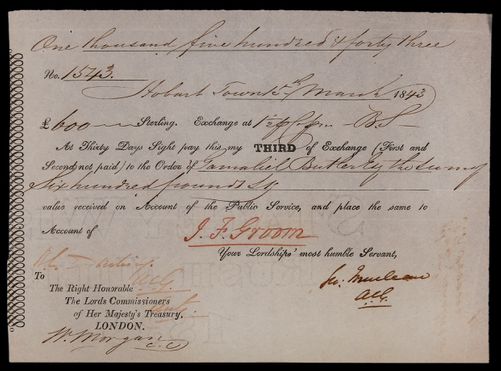 One thousand five hundred & forty three
No. 1543.
Hobart Town March 1843
£ 600 Sterling. Exchange at
At Thirty Days Sight pay this my THIRD of Exchange (First and
Second not paid) to the Order of Gamaliel Butler Esq the sum of
Six hundred pounds Stg
value received on Account of the Public Service, and place the same to
Account of J. F. Groom
Your Lordships' most humble Servant,
acting
To
The Right Honorable
The Lords Commissioners
of Her Majesty's Treasury.
LONDON.
A.C.G.
W. Morgan